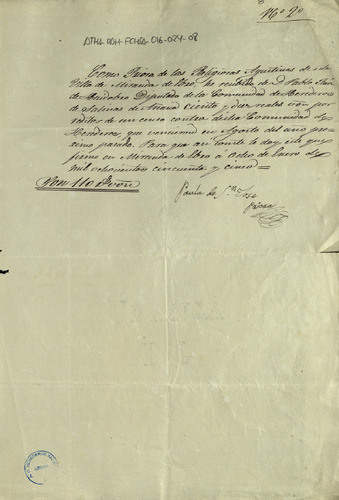 Nº 2º
ATHA-DAH-FCHDA-016-024-08
Como Priora de las Religiosas Agustinas de esta
Villa de Miranda de Ebro, he recibido de D. Pablo
de Huidobro Diputado de la Comunidad de Herederos
de Salinas de Añana Ciento y diez reales von por
réditos de un censo contra dicha Comunidad de
Herederos, que vencieron en Agosto del año pro-
ximo pasado. Para que así conste le doy este que
firmo en Miranda de Ebro á Ocho de Enero de
mil ochocientos cincuenta y cinco
Son 110 rs von
Paula de Sn José
Priora